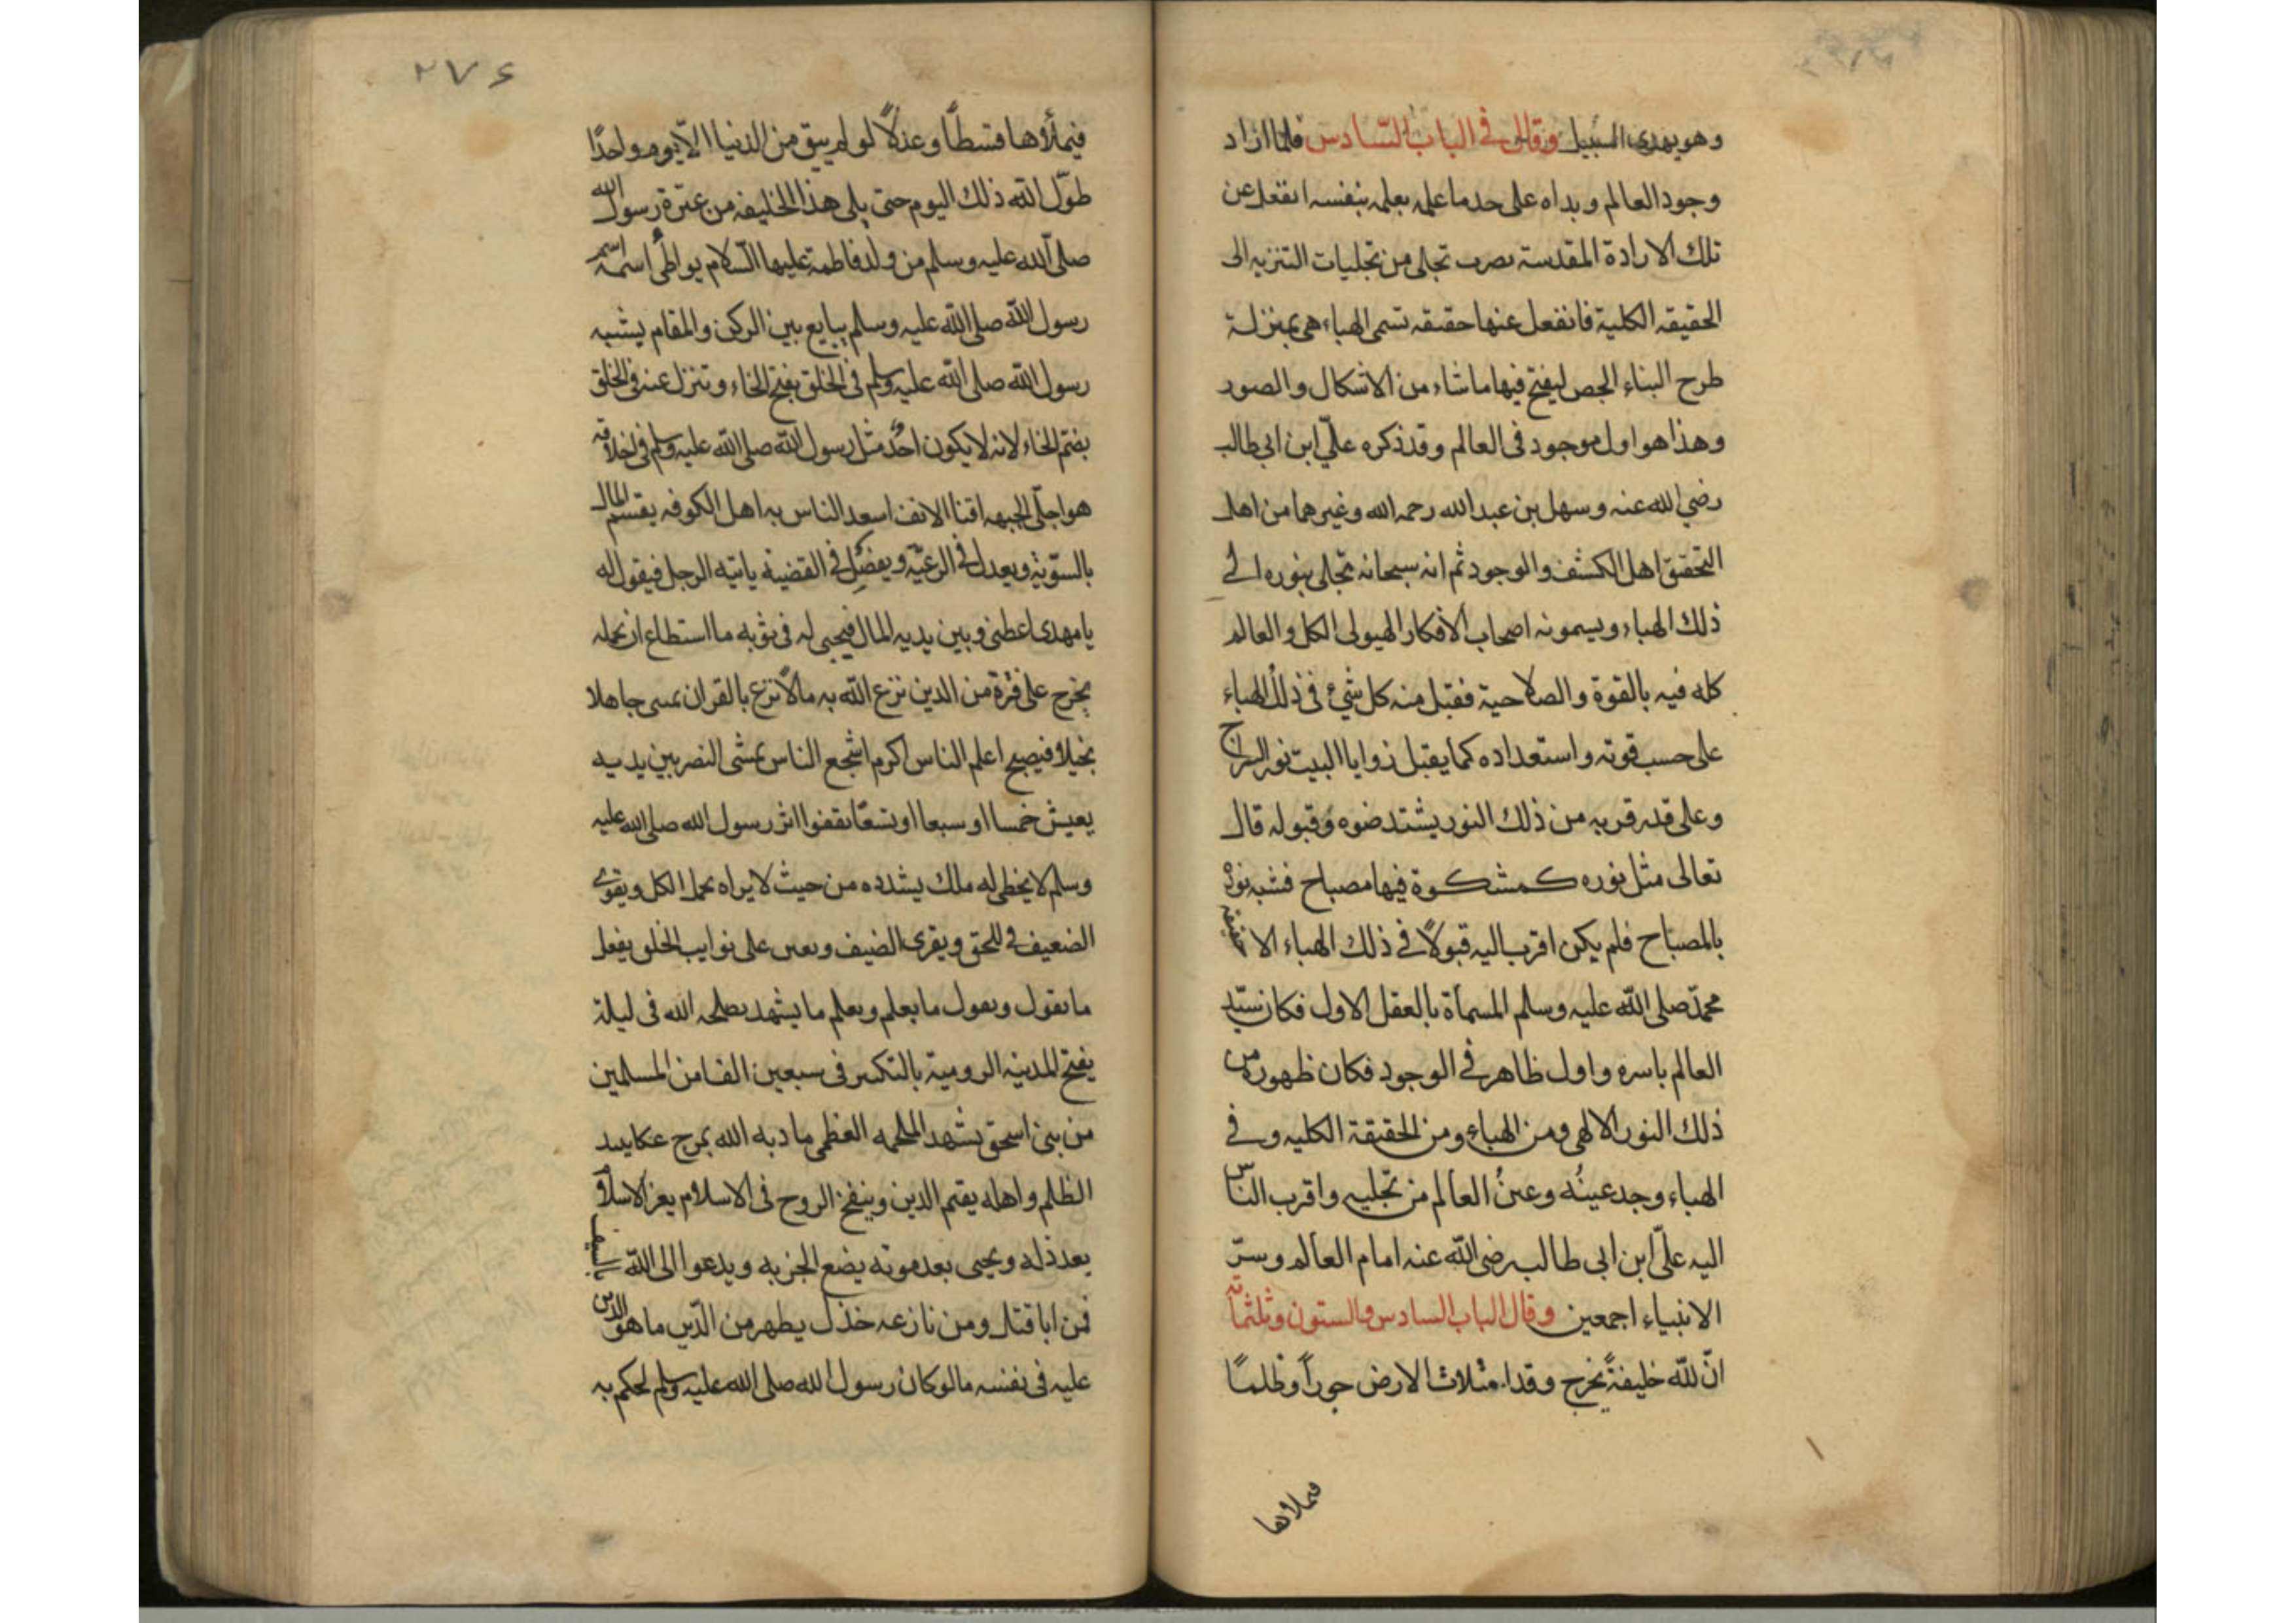 وهو يهدي السبيل وقال في الباب السادس فلما اراد
وجود العالم وبداه على حد ما علمه بعلمه بنفسه انفعل عن
تلك الارادة المقدسة بضرب تجلى من تجليات التنزيه الى
الحقيقه الكلية فانفعل عنها حقيقه تسمى الهباء هى بمنزلة
طرح البناء الجص ليفتح فيها ما شاء من الاشكال والصور
وهذا هو اول موجود فى العالم وقد ذكره علىّ ابن ابى طالب
رضي الله عنه وسهل بن عبد الله رحمه الله وغيرهما من اهل
التحقيق اهل الكشف والوجود ثم انه سبحانه تجلى بنوره الى
ذلك الهباء ويسمونه اصحاب الافكار الهيولى الكل والعالم
كله فيه بالقوة والصلاحية فقبل منه كل شيء فى ذلك الهباء
على حسب قوته واستعداده كما يقبل زوايا البيت نور السراج
وعلى قدر قربه من ذلك النور يشتد ضوه وقبوله قال
تعالى مثل نوره كمشكوة فيها مصباح فشبه نوره
بالمصباح فلم يكن اقرب اليه قبولاً فى ذلك الهباء الا حقيقة
محمد صلى الله عليه وسلم المسماة بالعقل الاول فكان سيّد
العالم باسره واول ظاهر فى الوجود فكان ظهوره من
ذلك النور الالهى ومن الهباء ومن الحقيقة الكليه وفى
الهباء وجد عينُه وعينُ العالم من تجليه واقرب الناس
اليه علىّ ابن ابى طالب رضى الله عنه امام العالم وسرّ
الانبياء اجمعين وقال الباب السادس والستون وثلثمائه
انّ لله خليفةً يخرج وقد امتلات الارض جوراً وظلماً
فيملاوها
٢٧٤
فيملأوها قسطاً وعدلاً لو لم يبق من الدنيا الاّ يوم واحدًا
طوّل الله ذلك اليوم حتى يلى هذا الخليفه من عترة رسول الله
صلى الله عليه وسلم من ولد فاطمة عليها السّلام يواطئ اسمه اسم
رسول الله صلى الله عليه وسلم يبايع بين الركن والمقام يشبه
رسول الله صلى الله عليه وسلم فى الخلق بفتح الخاء وتنزل عنه فى الخلق
بضم الخاء لانه لا يكون احدٌ مثل رسول الله صلى الله عليه وسلم فى اخلاقه
هو اجلّى الجبهه اقنا الانف اسعد الناس به اهل الكوفه يقسم المال
بالسّوية ويعدل فى الرعيّة ويفصل فى القضية ياتيه الرجل فيقول له
يا مهدى اعطنى وبين يديه المال فيحيى له فى ثوبه ما استطاع ان يحمله
يخرج على فترة من الدين نزع الله به مالاً نزع بالقران يمسى جاهلا
بخيلا فيصبح اعلم الناس اكرم اشجع الناس يمشى النصر بين يديه
يعيش خمسا او سبعا او تسعًا يقفوا اثر رسول الله صلى الله عليه
وسلم لا يخطى له ملك يشدده من حيث لا يراه يحمل الكل ويقوى
الضعيف فى الحق ويقرى الضيف ويعين على نوايب الخلق يفعل
ما يقول ويقول ما يعلم ويعلم ما يشهد يصلحه الله فى ليلة
يفتح المدينه الرومية بالتكبير فى سبعين الفا من المسلمين
من بنى اسحق يشهد الملحمه العظمى مادبه الله بمرج عكا يبيد
الظلم واهله يقيم الدين وينفخ الروح فى الاسلام يعز الاسلام
بعد ذله ويحيى بعد موته يضع الجزيه ويدعوا الى الله بالسيف
فمن ابا قتل ومن نازعه خذل يظهر من الدّين ما هو الدين
عليه فى نفسه ما لو كان رسول الله صلى الله عليه وسلم لحكم به